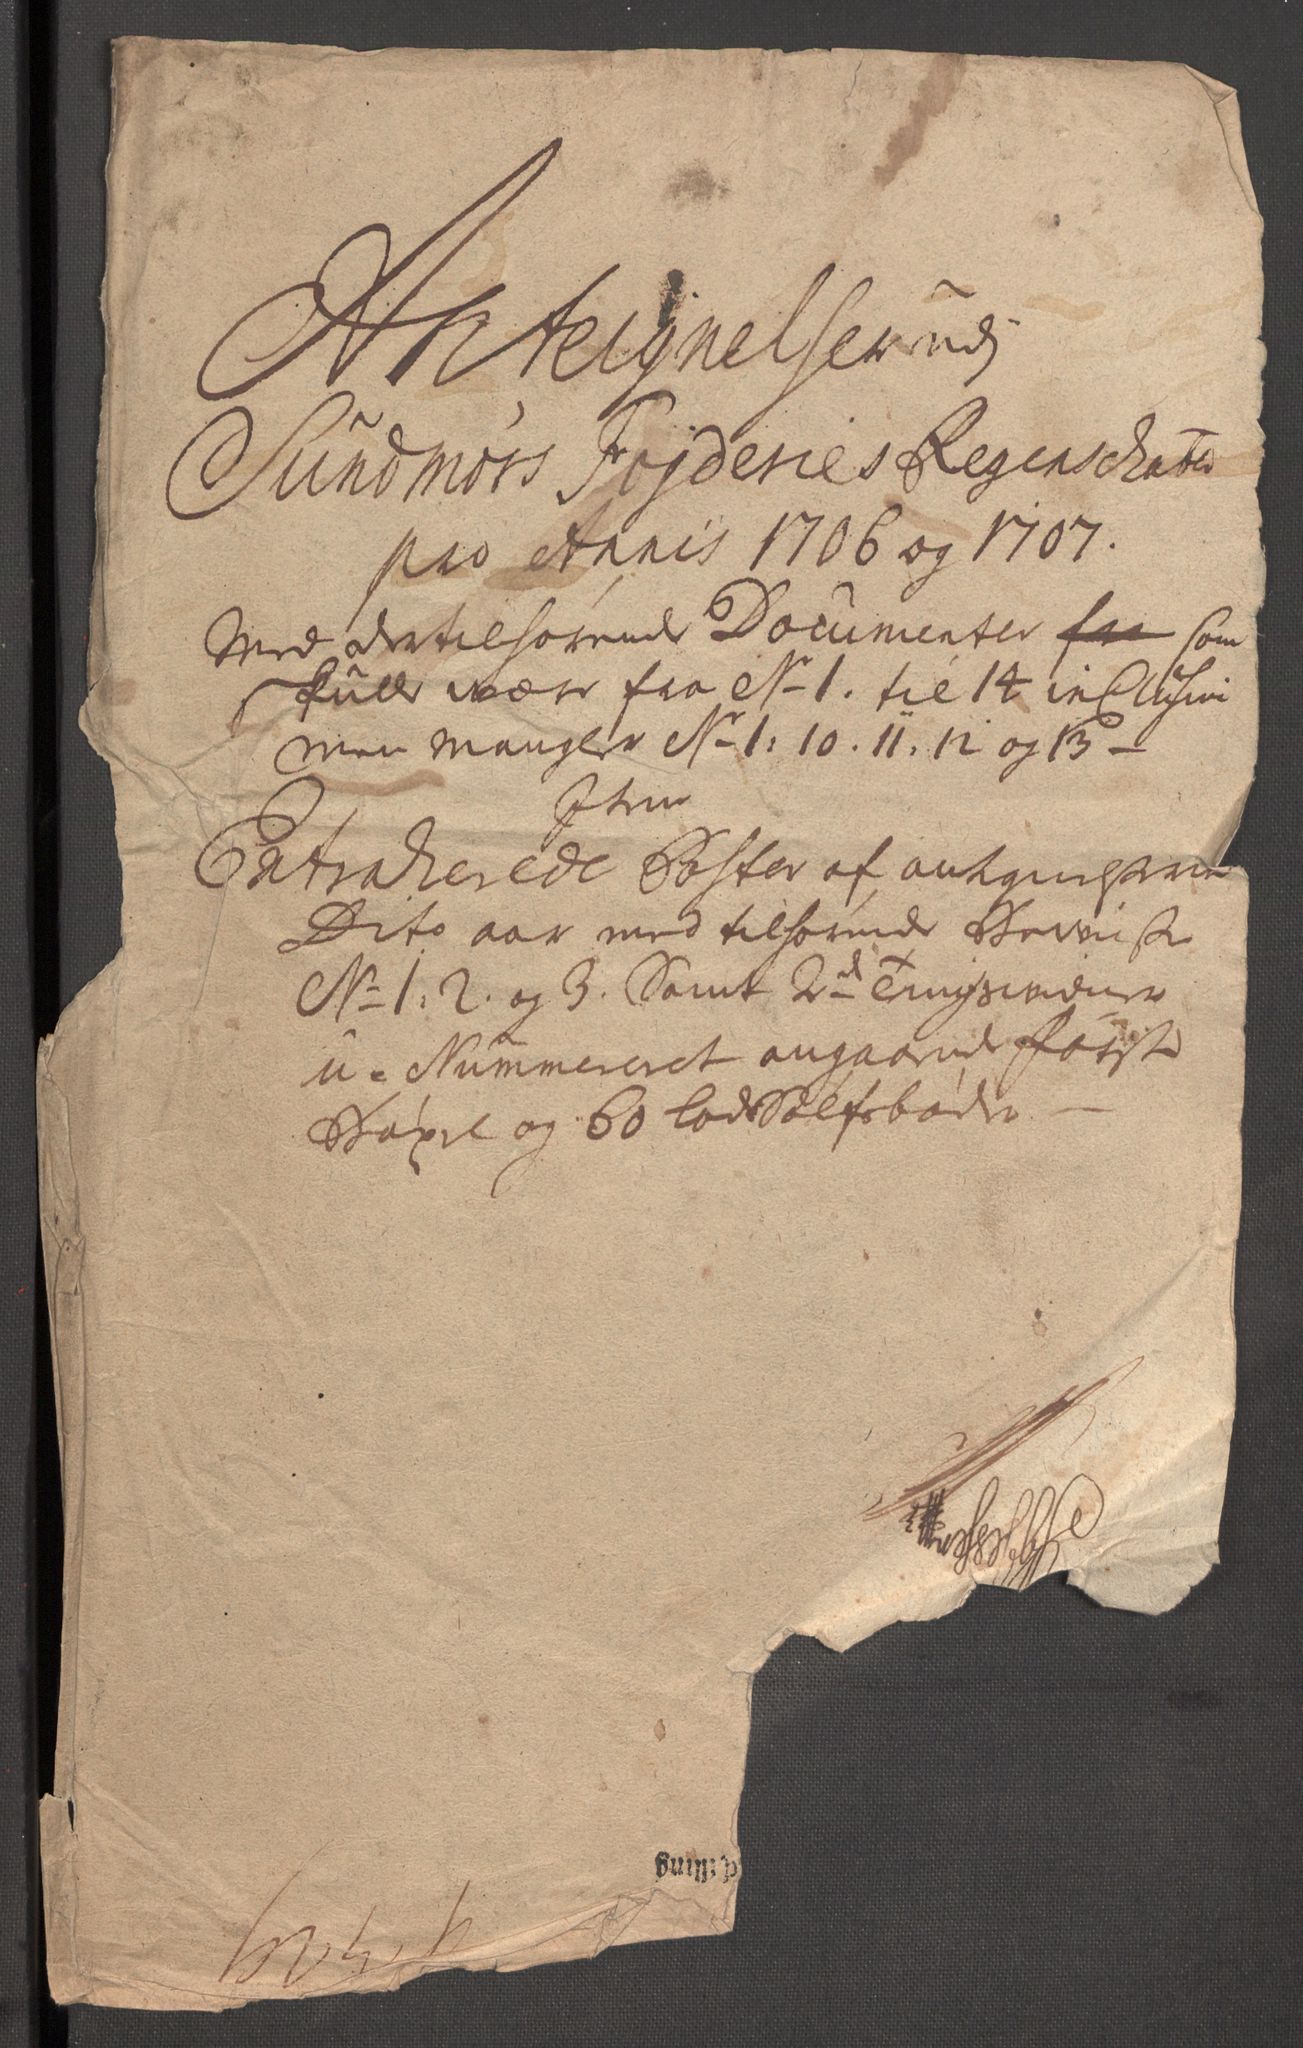 Anteignelser udj
Sundmørs Fogderies Regenskaber
pro Annis 1706 og 1707.
Med dertilhørende Documenter fra som
skulle være fra No 1. til 14 inclusive
men mangler No 1: 10. 11: 12 og 13 —
Item
Extraherede Poster af antegnelserne
Dito aar med tilhørende Beviiser
No 1: 2. og 3. Samt 2de Tingsvidner
u-Nummereret angaaende første
og 60 lod Sølfs bøder —